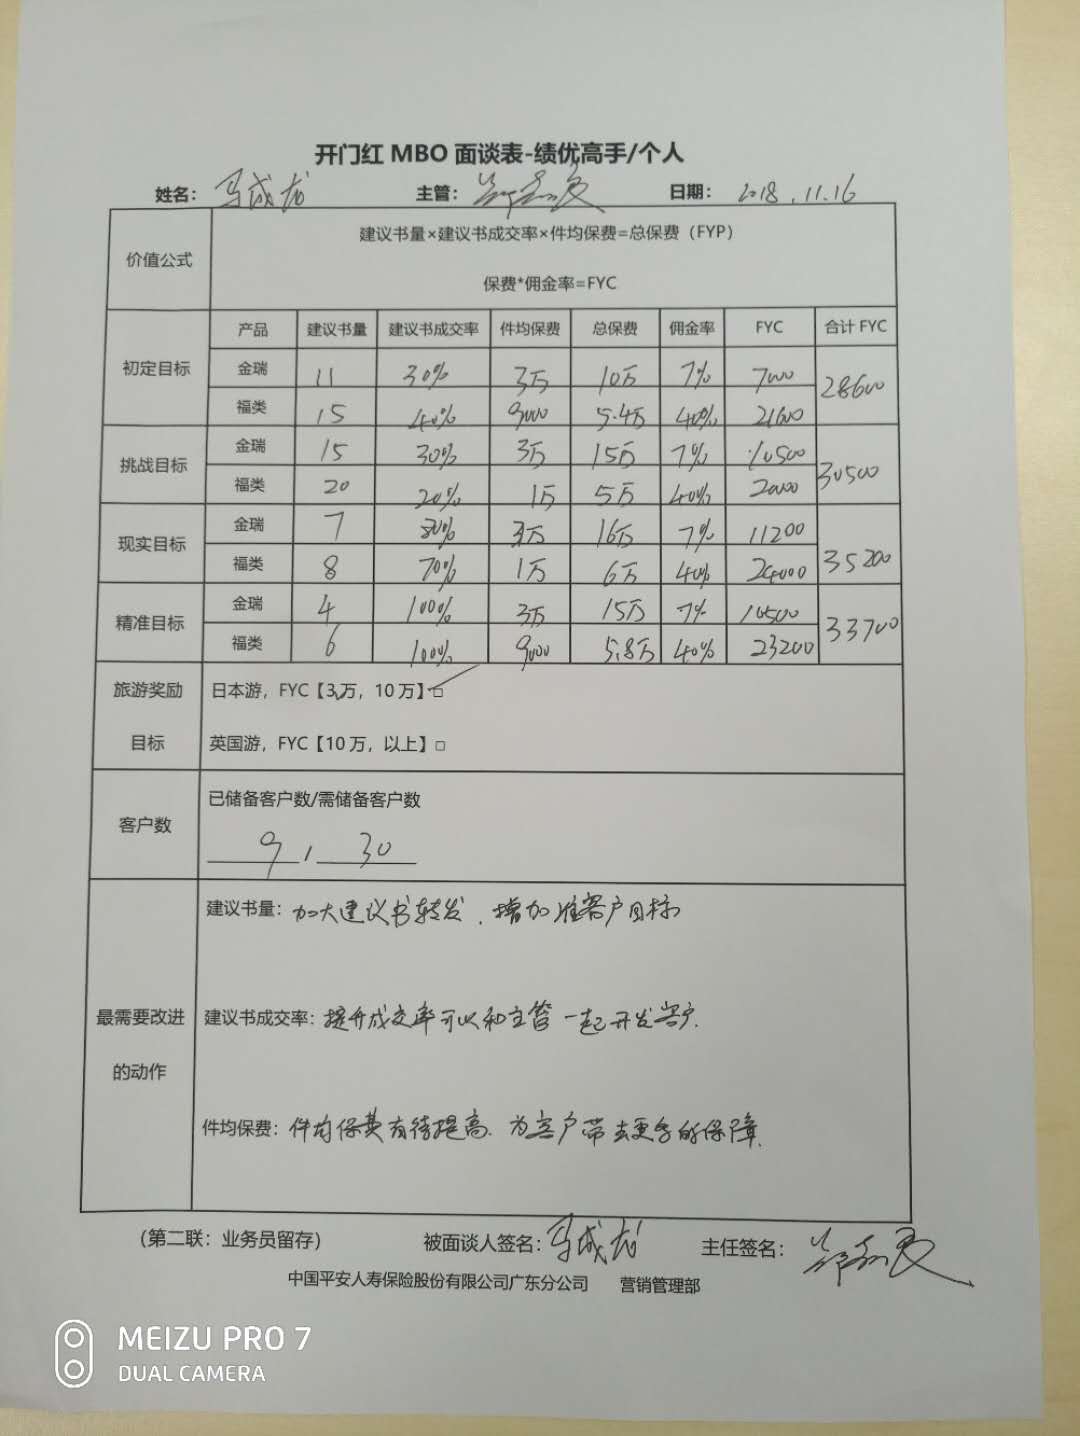 开门红 MBO 面谈表-绩优高手/个人
姓名： 马成龙 主管： 日期： 2018.11.16
价值公式
建议书量×建议书成交率×件均保费=总保费（FYP）
保费*佣金率=FYC
产品 建议书量 建议书成交率 件均保费 总保费 佣金率 FYC 合计 FYC
初定目标
金瑞 11 30% 3万 10万 7% 7000 28600
福类 15 40% 9000 5.4万 40% 21600
挑战目标
金瑞 15 30% 3万 15万 7% 10500 30500
福类 20 20% 1万 5万 40% 20000
现实目标
金瑞 7 80% 3万 16万 7% 11200 35200
福类 8 70% 1万 6万 40% 24000
精准目标
金瑞 4 100% 3万 15万 7% 10500 33700
福类 6 100% 9000 5.8万 40% 23200
旅游奖励
目标
日本游，FYC【3万，10万】□
英国游，FYC【10万，以上】□
客户数
已储备客户数/需储备客户数
9 , 30
最需要改进
的动作
建议书量：加大建议书转发、增加准客户目标
建议书成交率：提升成交率可以和主管一起开发客户.
件均保费：件均保费有待提高.为客户带去更多的保障.
（第二联：业务员留存） 被面谈人签名：马成龙 主任签名：
中国平安人寿保险股份有限公司广东分公司 营销管理部
MEIZU PRO 7
DUAL CAMERA